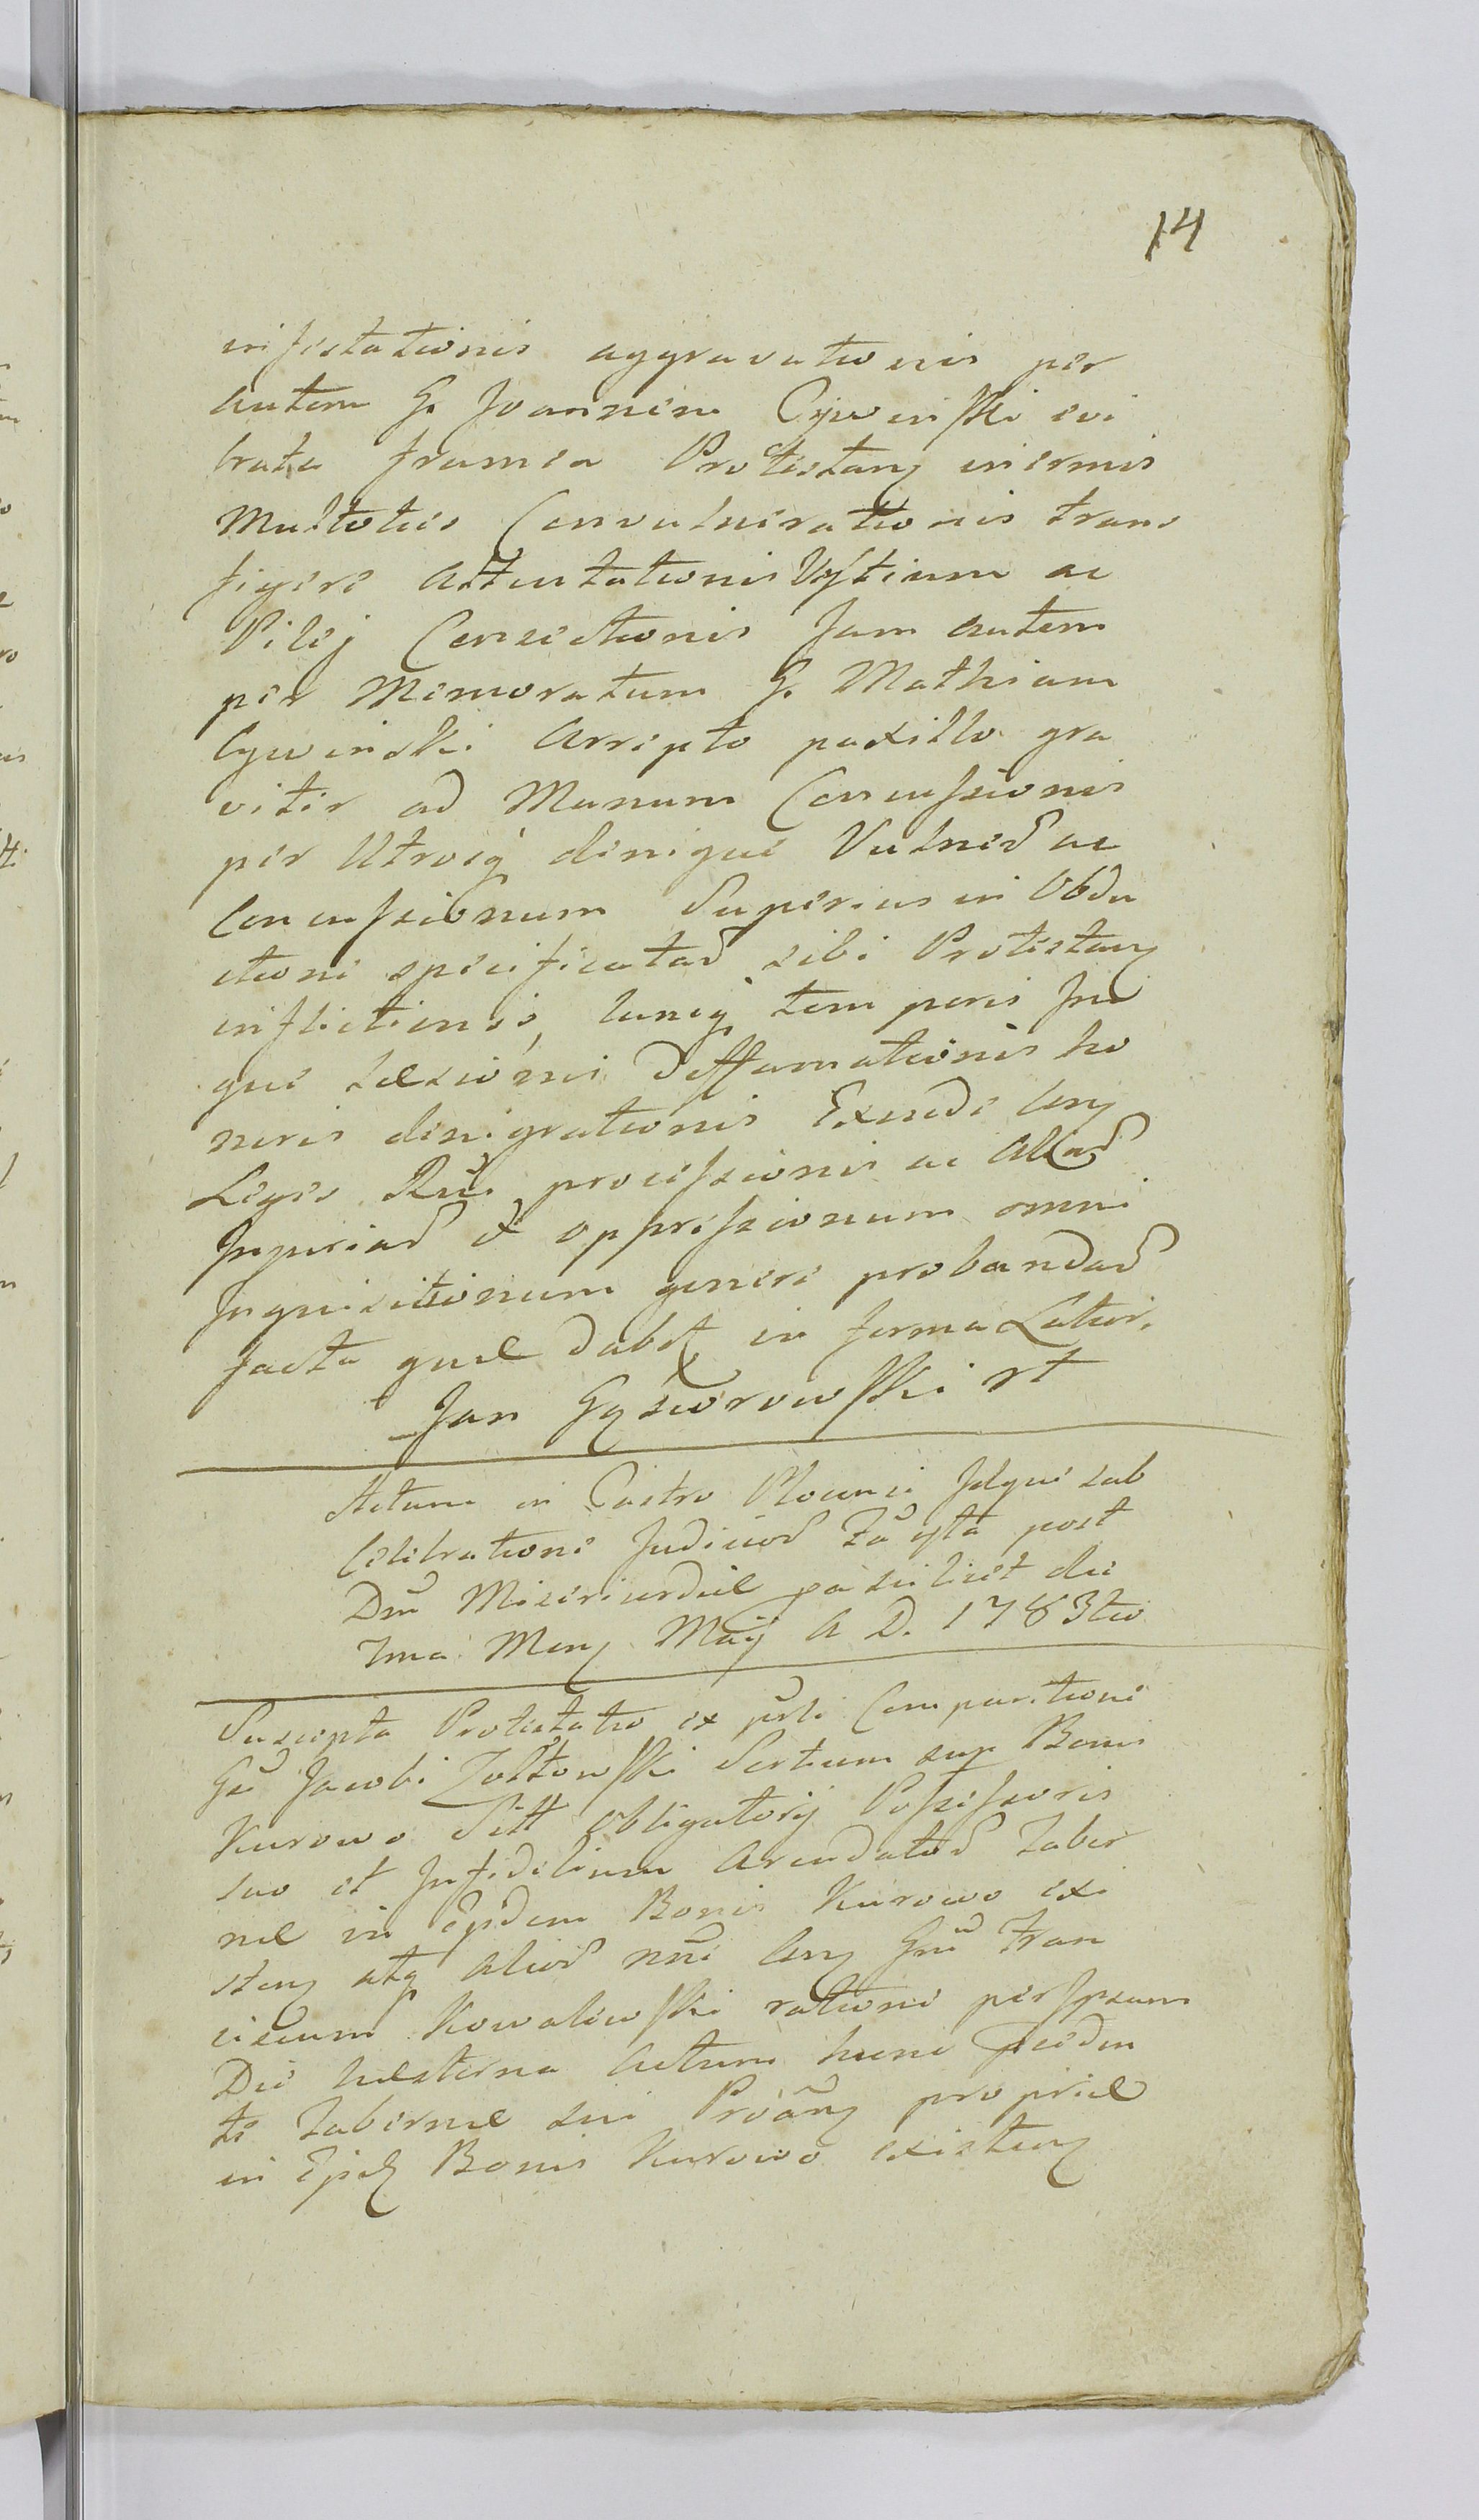 14
infestationis aggravationis per
autem G. Joannem Cywinski evi
brata framea Protestan inermis
Multoties Convulnerationis trans
figere attentationis Vestium ac
Pilej Consectionis Jam autem
per Memoratum G. Mathiam
Cywinski Arrepto paxillo gra
viter ad Manum Concussionis
per Utrosq denique Vulner ac
Concussionum Superius in Obdu
ctione specificatar sibi Protestan
inflictionis, cunis temporis Fri
que laesionis deffamationis ho
noris denigrationis Exinde Con
Leges processionis ac aliar
Injuriar & oppressionum omni
Inquisitionum genere probandar
facta quae dabt in forma Latiori.
Jan Gąsiorowski
Actum in Castro Plocensi Idque sub
Celebratione Judicior post
Dnu Misericordiae pa scilicet die
7ma Men Maij A D. 1783tio
Suscepta Protestatio ex psti Comparitione
Gsi Jacobi Zołtowski Sortium sup Bonis
Kurowo Sitt Obligatorij Possessoris
suo et Infidelium Arendator Taber
nae in Epdem Bonis Kurowo exi
sten atq alior nne Con Gnu Fran
ciscum Kowalewski ratione per Ipsum
Die hesterna Actum hunc
te Tabernae sui Proan propriae
in Bonis Kurowo existen